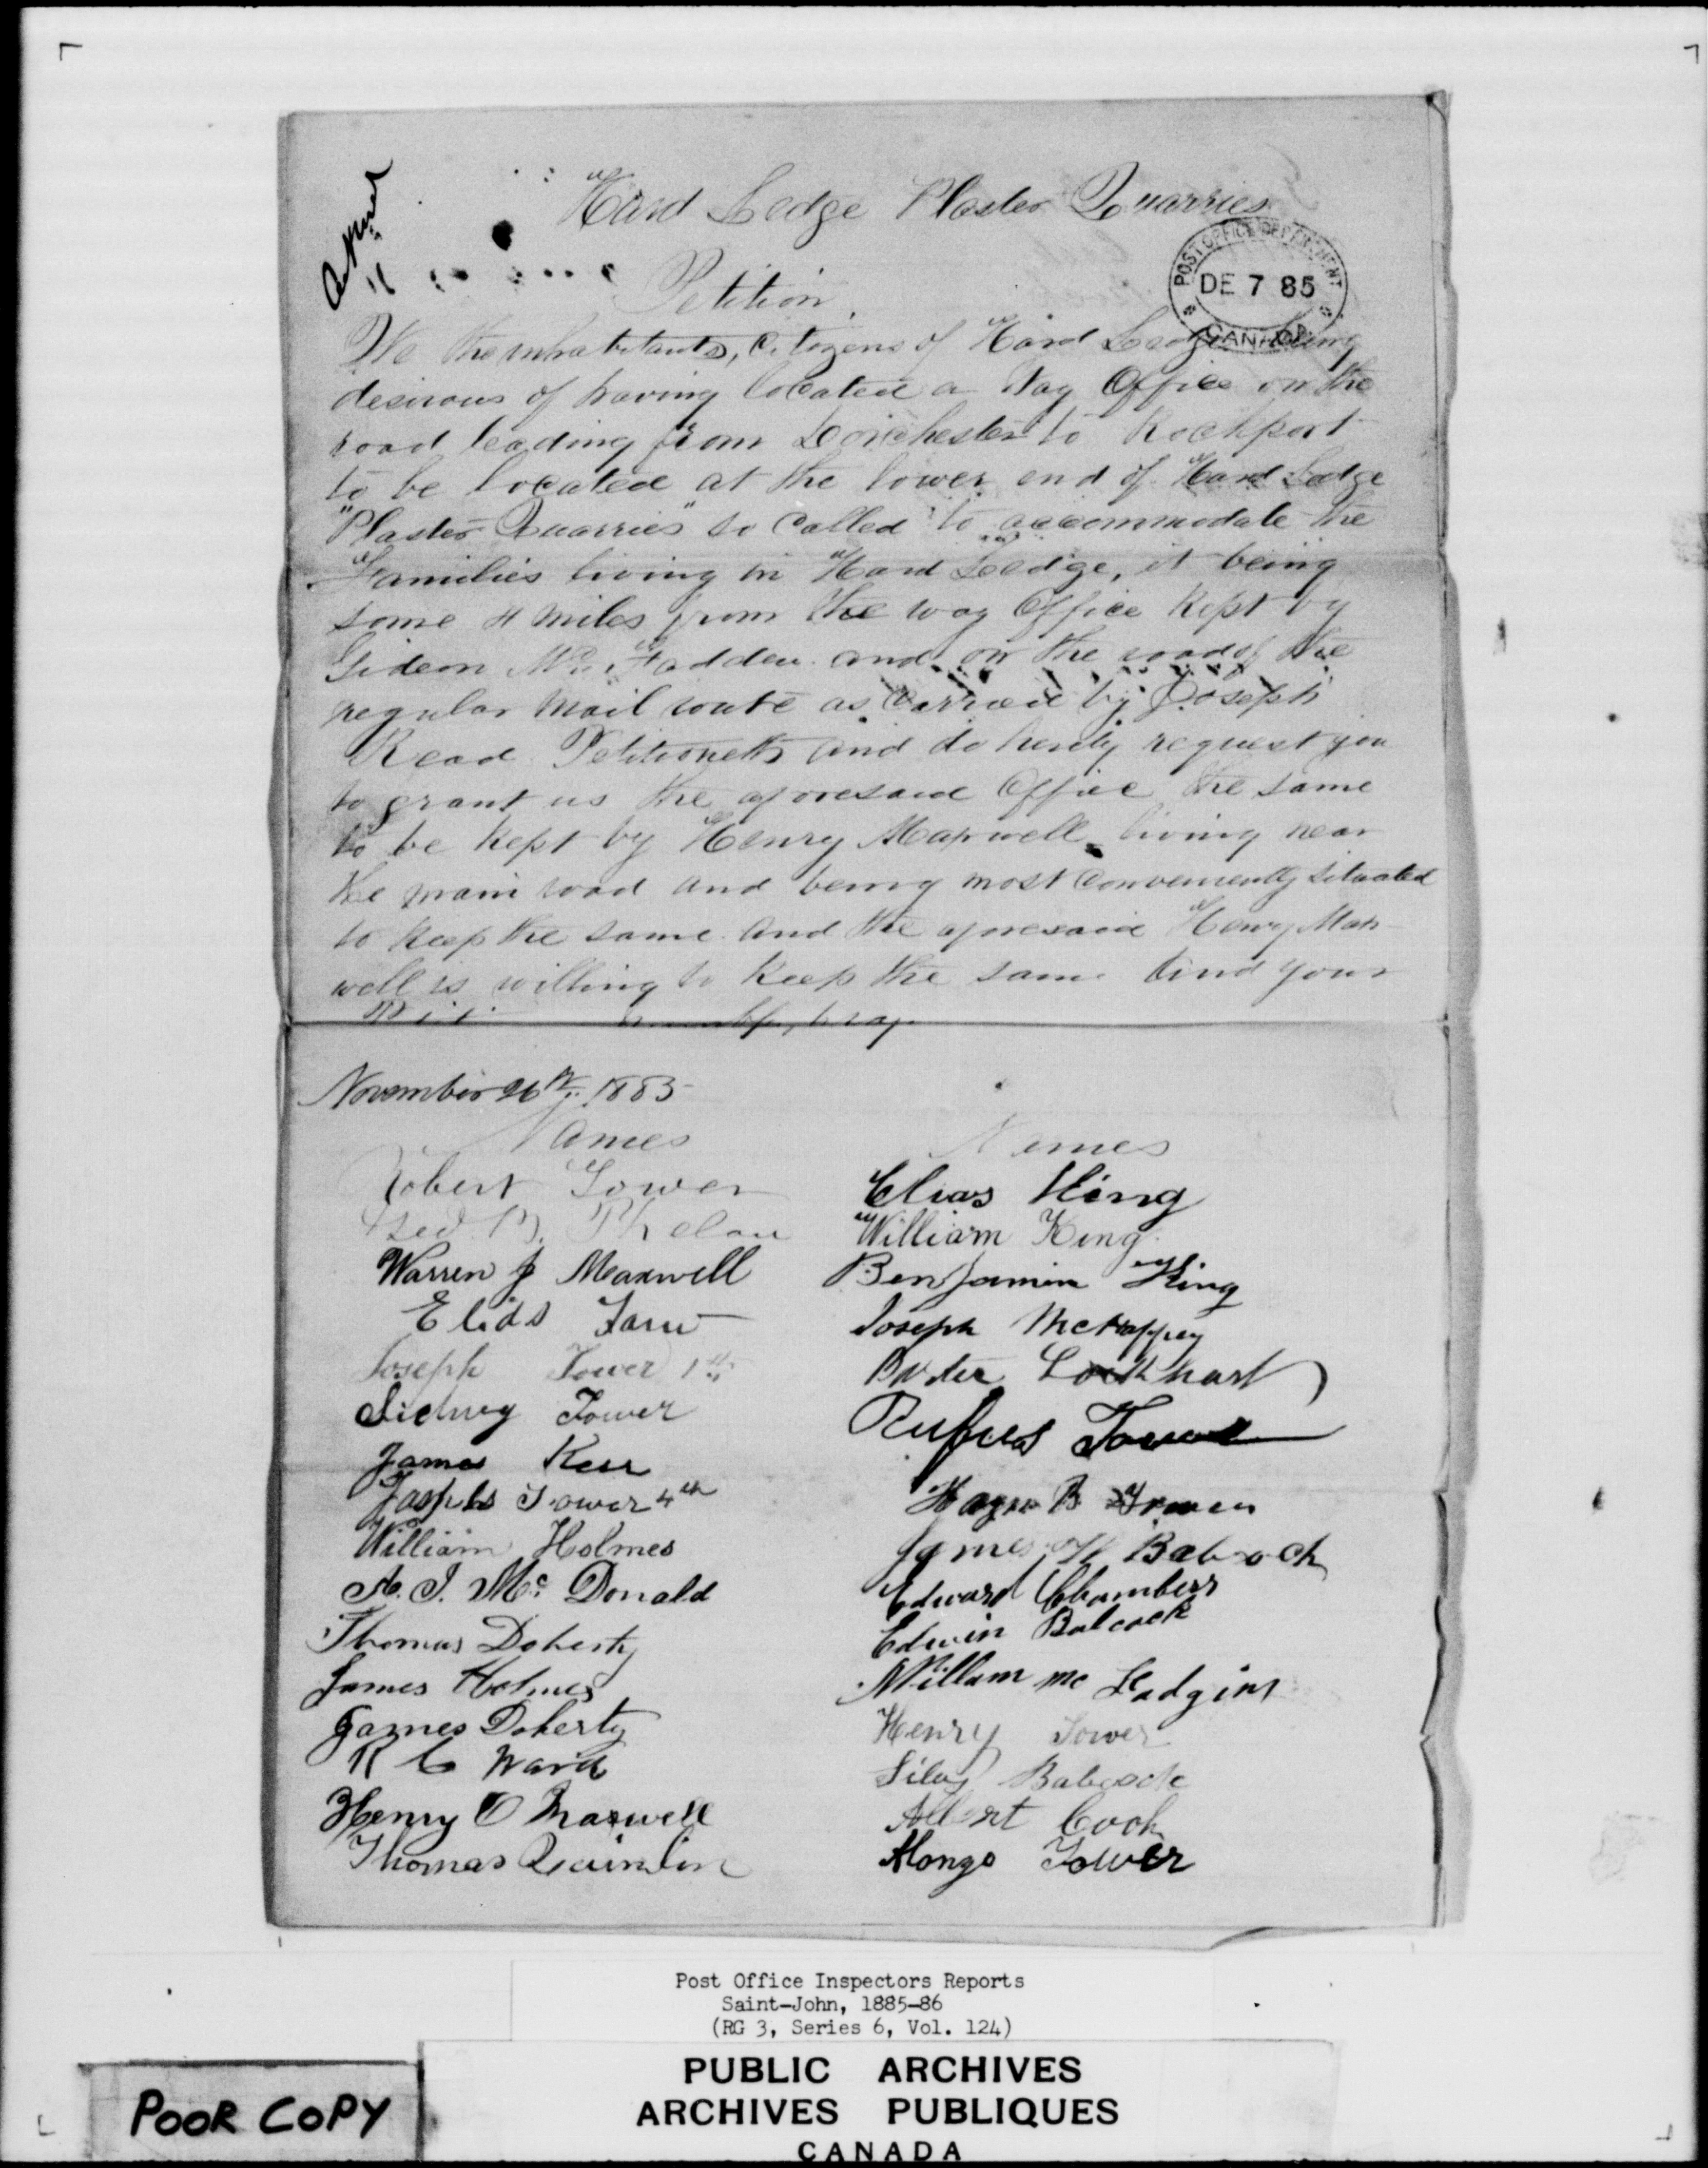 Hard Ledge Plaster Quarries
POST OFFICE DEPARTMENT
DE 7 85
CANADA
Petition
We the inhabitants, Citizens of Hard Ledge being
desirous of having located a Way Office on the
road leading from Dorchester to Rockport
to be located at the lower end of Hard Ledge
"Plaster Quarries" so called to accommodate the
Families living in Hard Ledge, it being
some 4 miles from the way Office Kept by
Gideon Mc Fadden and on the road of the
regular Mail route as Carried by Joseph
Read Petitioners and do hereby request you
to grant us the aforesaid Office the same
to be Kept by Henry Maxwell living near
the main road and being most Conveniently situated
to Keep the same and the aforesaid Henry Max-
well is willing to Keep the same And your
November 26th 1885
Names
Names
Robert Tower
Elias King
Phelan
William King
Warren J Maxwell
Benjamin King
Joseph McHaffey
Joseph Tower 1st
Lockhart
Sidney Tower
Rufus Tower
James Kerr
B Tower
Tower 4th
James W Babcock
William Holmes
Edward Chambers
A. J. Mc Donald
Edwin Babcock
Thomas Doherty
William mc
James Holmes
Henry Tower
James Doherty
Silas Babcock
R C Ward
Albert Cook
Henry O Maxwell
Alonzo Tower
Thomas Quinlin
Post Office Inspectors Reports
Saint-John, 1885-86
(RG 3, Series 6, Vol. 124)
PUBLIC ARCHIVES
ARCHIVES PUBLIQUES
CANADA
POOR COPY